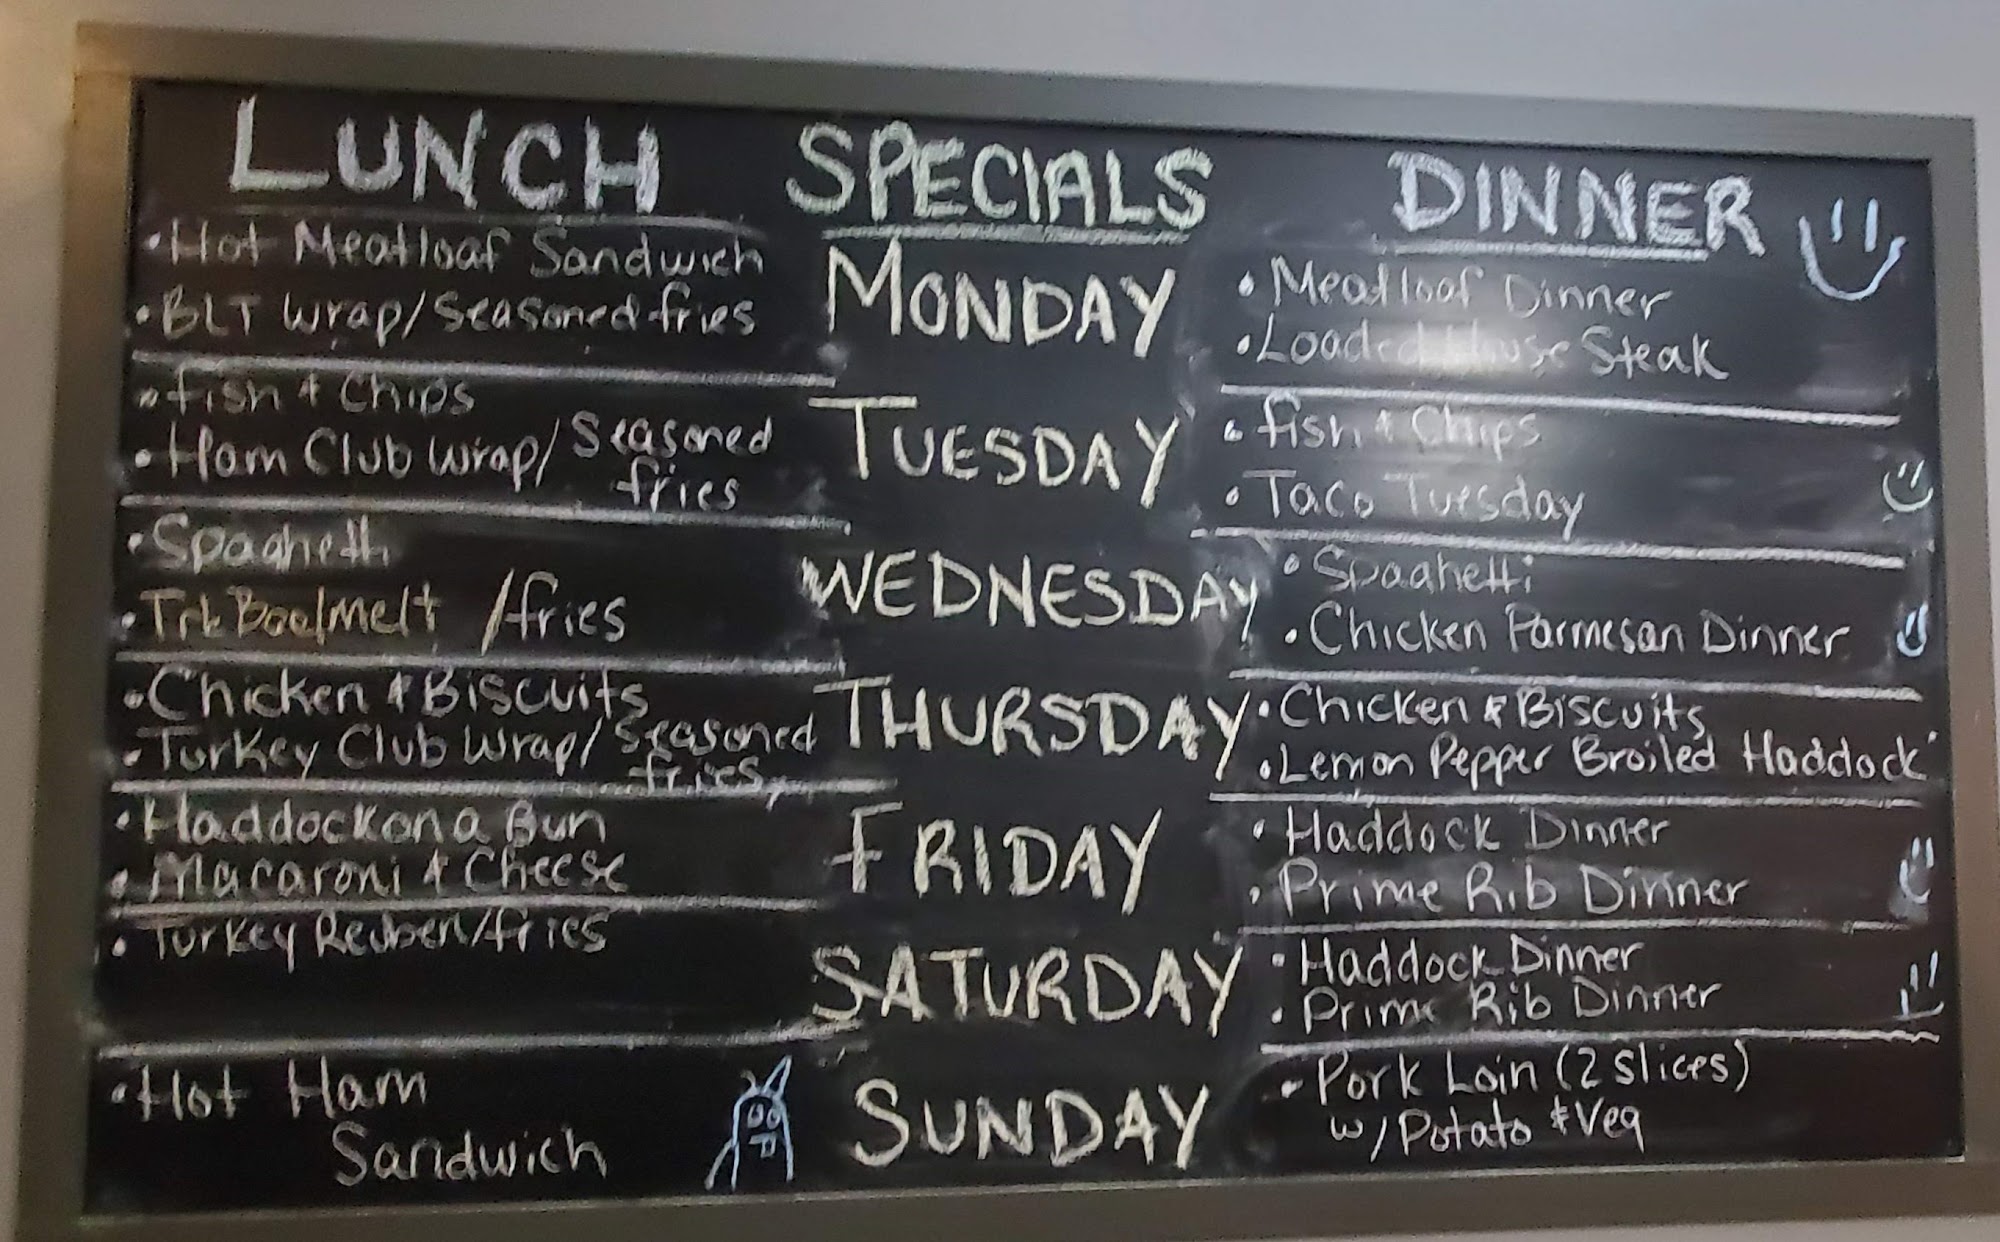 LUNCH SPECIALS DINNER
• Hot Meatloaf Sandwich
• BLT Wrap/Seasoned fries
MONDAY
• Meatloaf Dinner
• Loaded House Steak
• Fish & Chips
• Ham Club Wrap/Seasoned
fries
TUESDAY
• Fish & Chips
• Taco Tuesday
• Spaghetti
• Melt /fries
WEDNESDAY
• Spaghetti
• Chicken Parmesan Dinner
• Chicken & Biscuits
• Turkey Club Wrap/Seasoned
fries
THURSDAY
• Chicken & Biscuits
• Lemon Pepper Broiled Haddock
• Haddock on a Bun
• Macaroni & Cheese
FRIDAY
• Haddock Dinner
• Prime Rib Dinner
• Turkey Reuben/fries
SATURDAY
• Haddock Dinner
• Prime Rib Dinner
• Hot Ham
Sandwich
SUNDAY
• Pork Loin (2 slices)
w/Potato & Veg